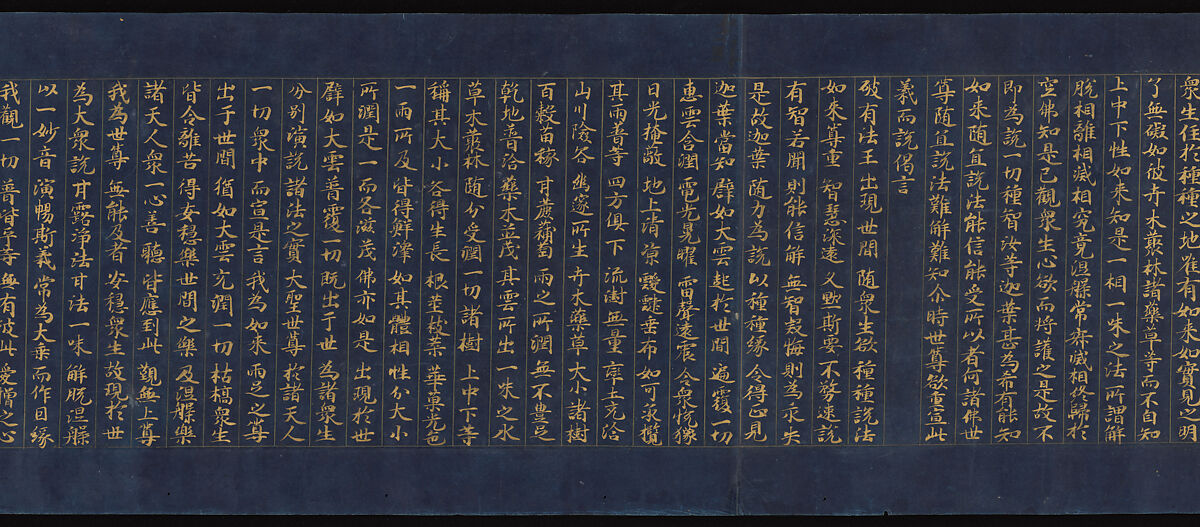 衆生住於種種之地唯有如来如實見之明
了無礙如彼卉木叢林諸藥草等而不自知
上中下性如来知是一相一味之法所謂解
脱相離相滅相究竟涅槃常寂滅相終歸於
空佛知是已觀衆生心欲而将護之是故不
即為説一切種智汝等迦葉甚為希有能知
如来随宜説法能信能受所以者何諸佛世
尊随宜説法難解難知尒時世尊欲重宣此
義而説偈言
破有法王 出現世間 随衆生欲 種種説法
如来尊重 智慧深遠 久黙斯要 不務速説
有智若聞 則能信解 無智疑悔 則為永失
是故迦葉 随力為説 以種種縁 令得正見
迦葉當知 譬如大雲 起於世間 遍覆一切
惠雲含潤 電光晃曜 雷聲遠震 令衆悦豫
日光掩蔽 地上清涼 靉靆垂布 如可承攬
其雨普等 四方俱下 流澍無量 率土充洽
山川險谷 幽邃所生 卉木藥草 大小諸樹
百穀苗稼 甘蔗蒲萄 雨之所潤 無不豊足
乾地普洽 藥木並茂 其雲所出 一味之水
草木叢林 随分受潤 一切諸樹 上中下等
稱其大小 各得生長 根莖枝葉 華菓光色
一雨所及 皆得鮮澤 如其體相 性分大小
所潤是一 而各滋茂 佛亦如是 出現於世
譬如大雲 普覆一切 既出于世 為諸衆生
分別演説 諸法之實 大聖世尊 於諸天人
一切衆中 而宣是言 我為如来 兩足之尊
出于世間 猶如大雲 充潤一切 枯槁衆生
皆令離苦 得安穏樂 世間之樂 及涅槃樂
諸天人衆 一心善聽 皆應到此 覲無上尊
我為世尊 無能及者 安穏衆生 故現於世
為大衆説 甘露浄法 其法一味 解脱涅槃
以一妙音 演暢斯義 常為大乗 而作因縁
我觀一切 普皆平等 無有彼此 愛憎之心